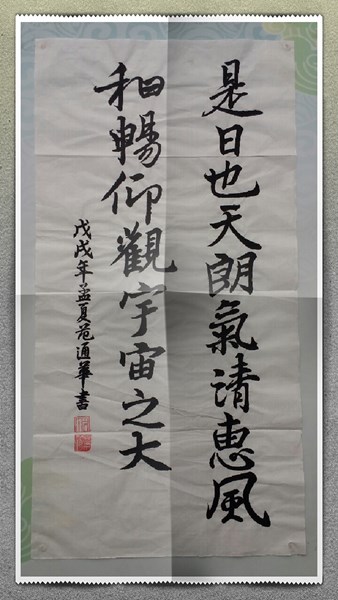 是日也天朗氣清惠風
和暢仰觀宇宙之大
戊戌年孟夏范通華書